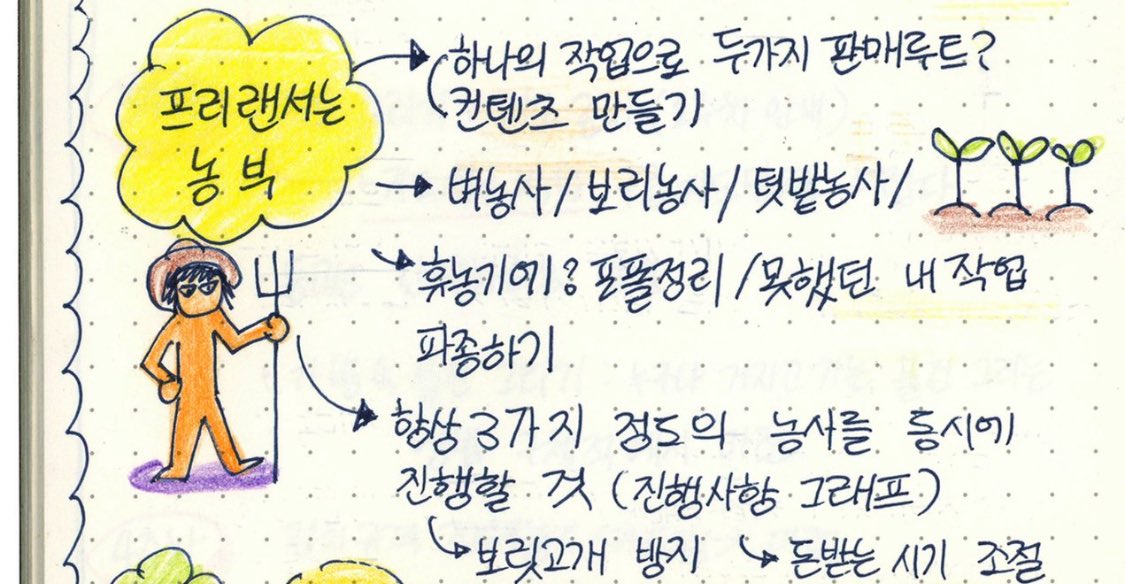 프리랜서는
농부
하나의 작업으로 두가지 판매루트?
컨텐츠 만들기
벼농사/보리농사/텃밭농사/
휴농기에? 포폴정리/못했던 내작업
파종하기
항상 3가지 정도의 농사를 동시에
진행할 것 (진행사항 그래프)
보릿고개 방지
돈받는 시기 조절